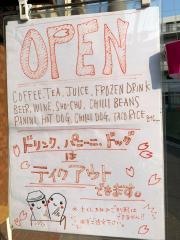 OPEN
COFFEE, TEA, JUICE, FROZEN DRINK
BEER, WINE, SHO-CHU, CHILLI BEANS
PANINI, HOT DOG, CHILLI DOG, TACO RICE
ドリンク、パニーニ、ドッグ
は
テイクアウト
できます。